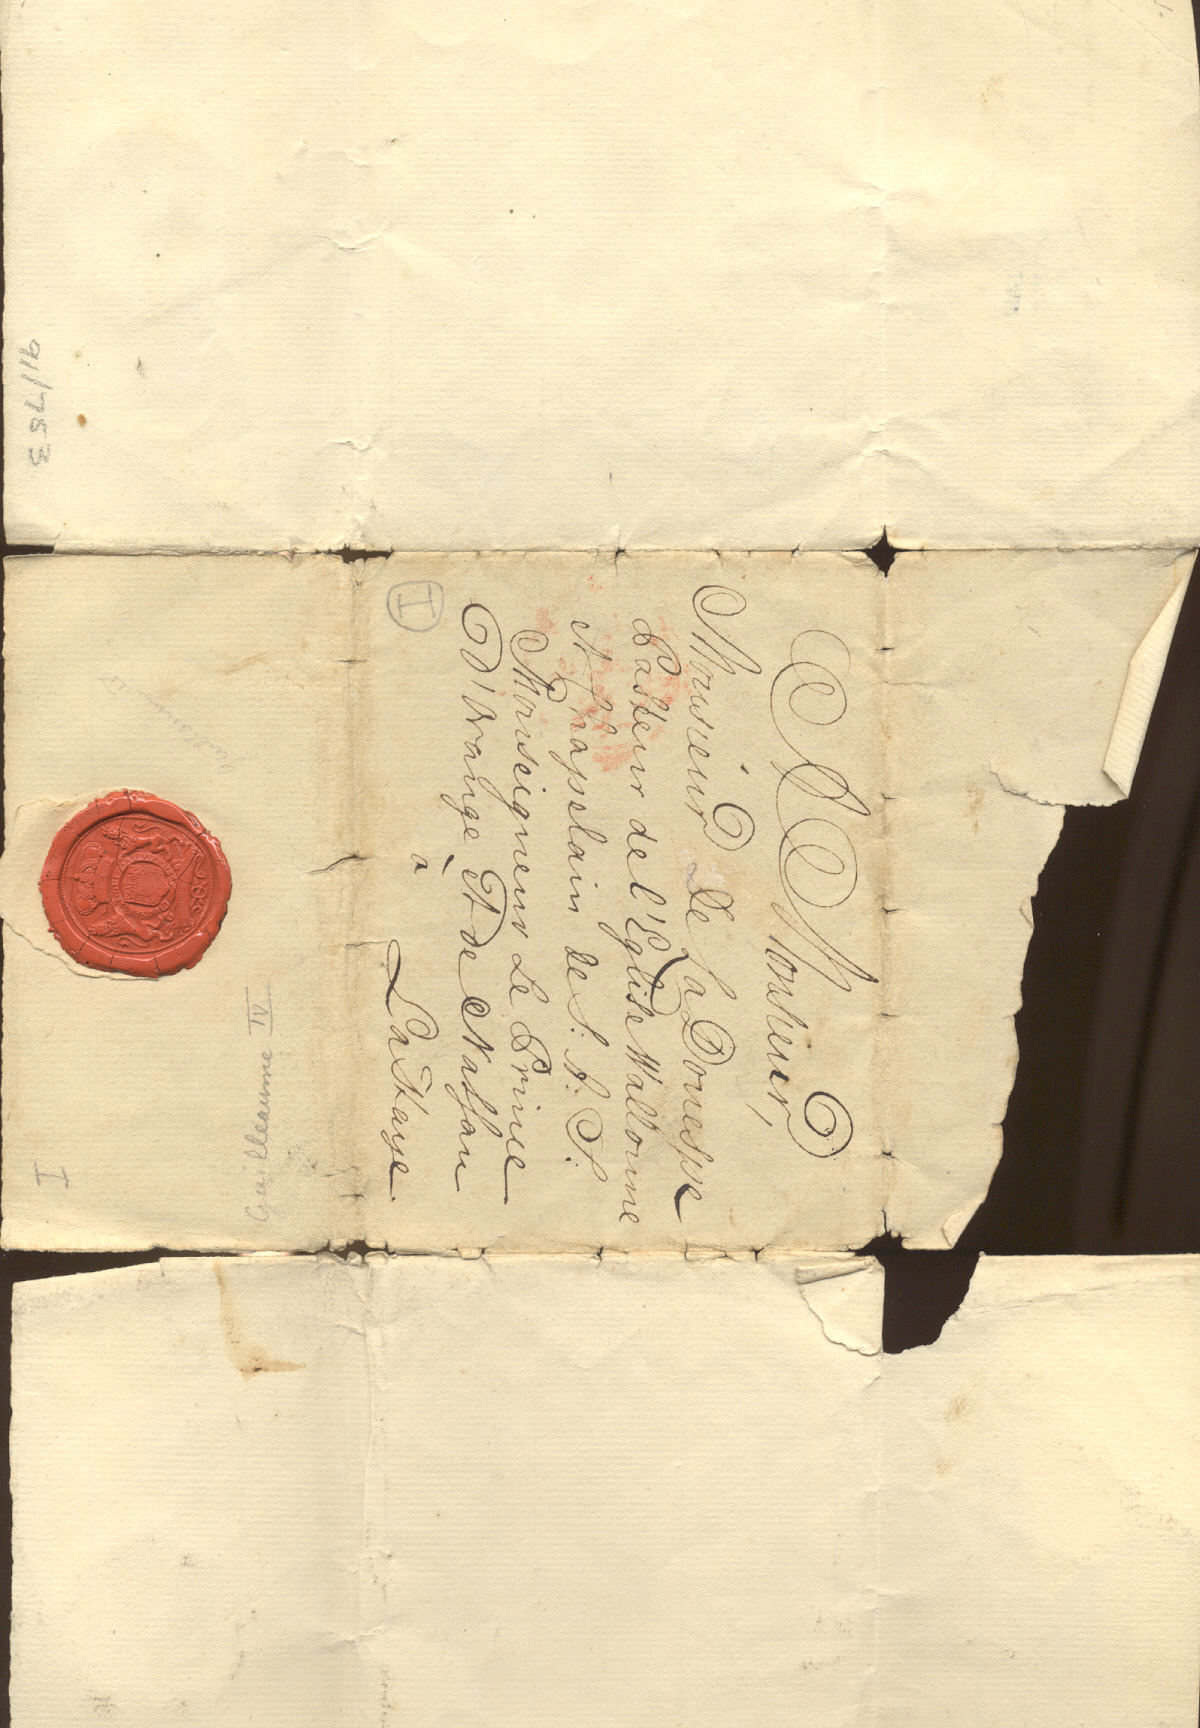 A Monsieur,
Monsieur De La Douespe
Pasteur de l'Eglise Wallonne
et Chappelain de S. A. S.
Monseigneur Le Prince
D'Orange Et de Nassau
à
La Haye.
I
Guilleaume IV
I
91/783